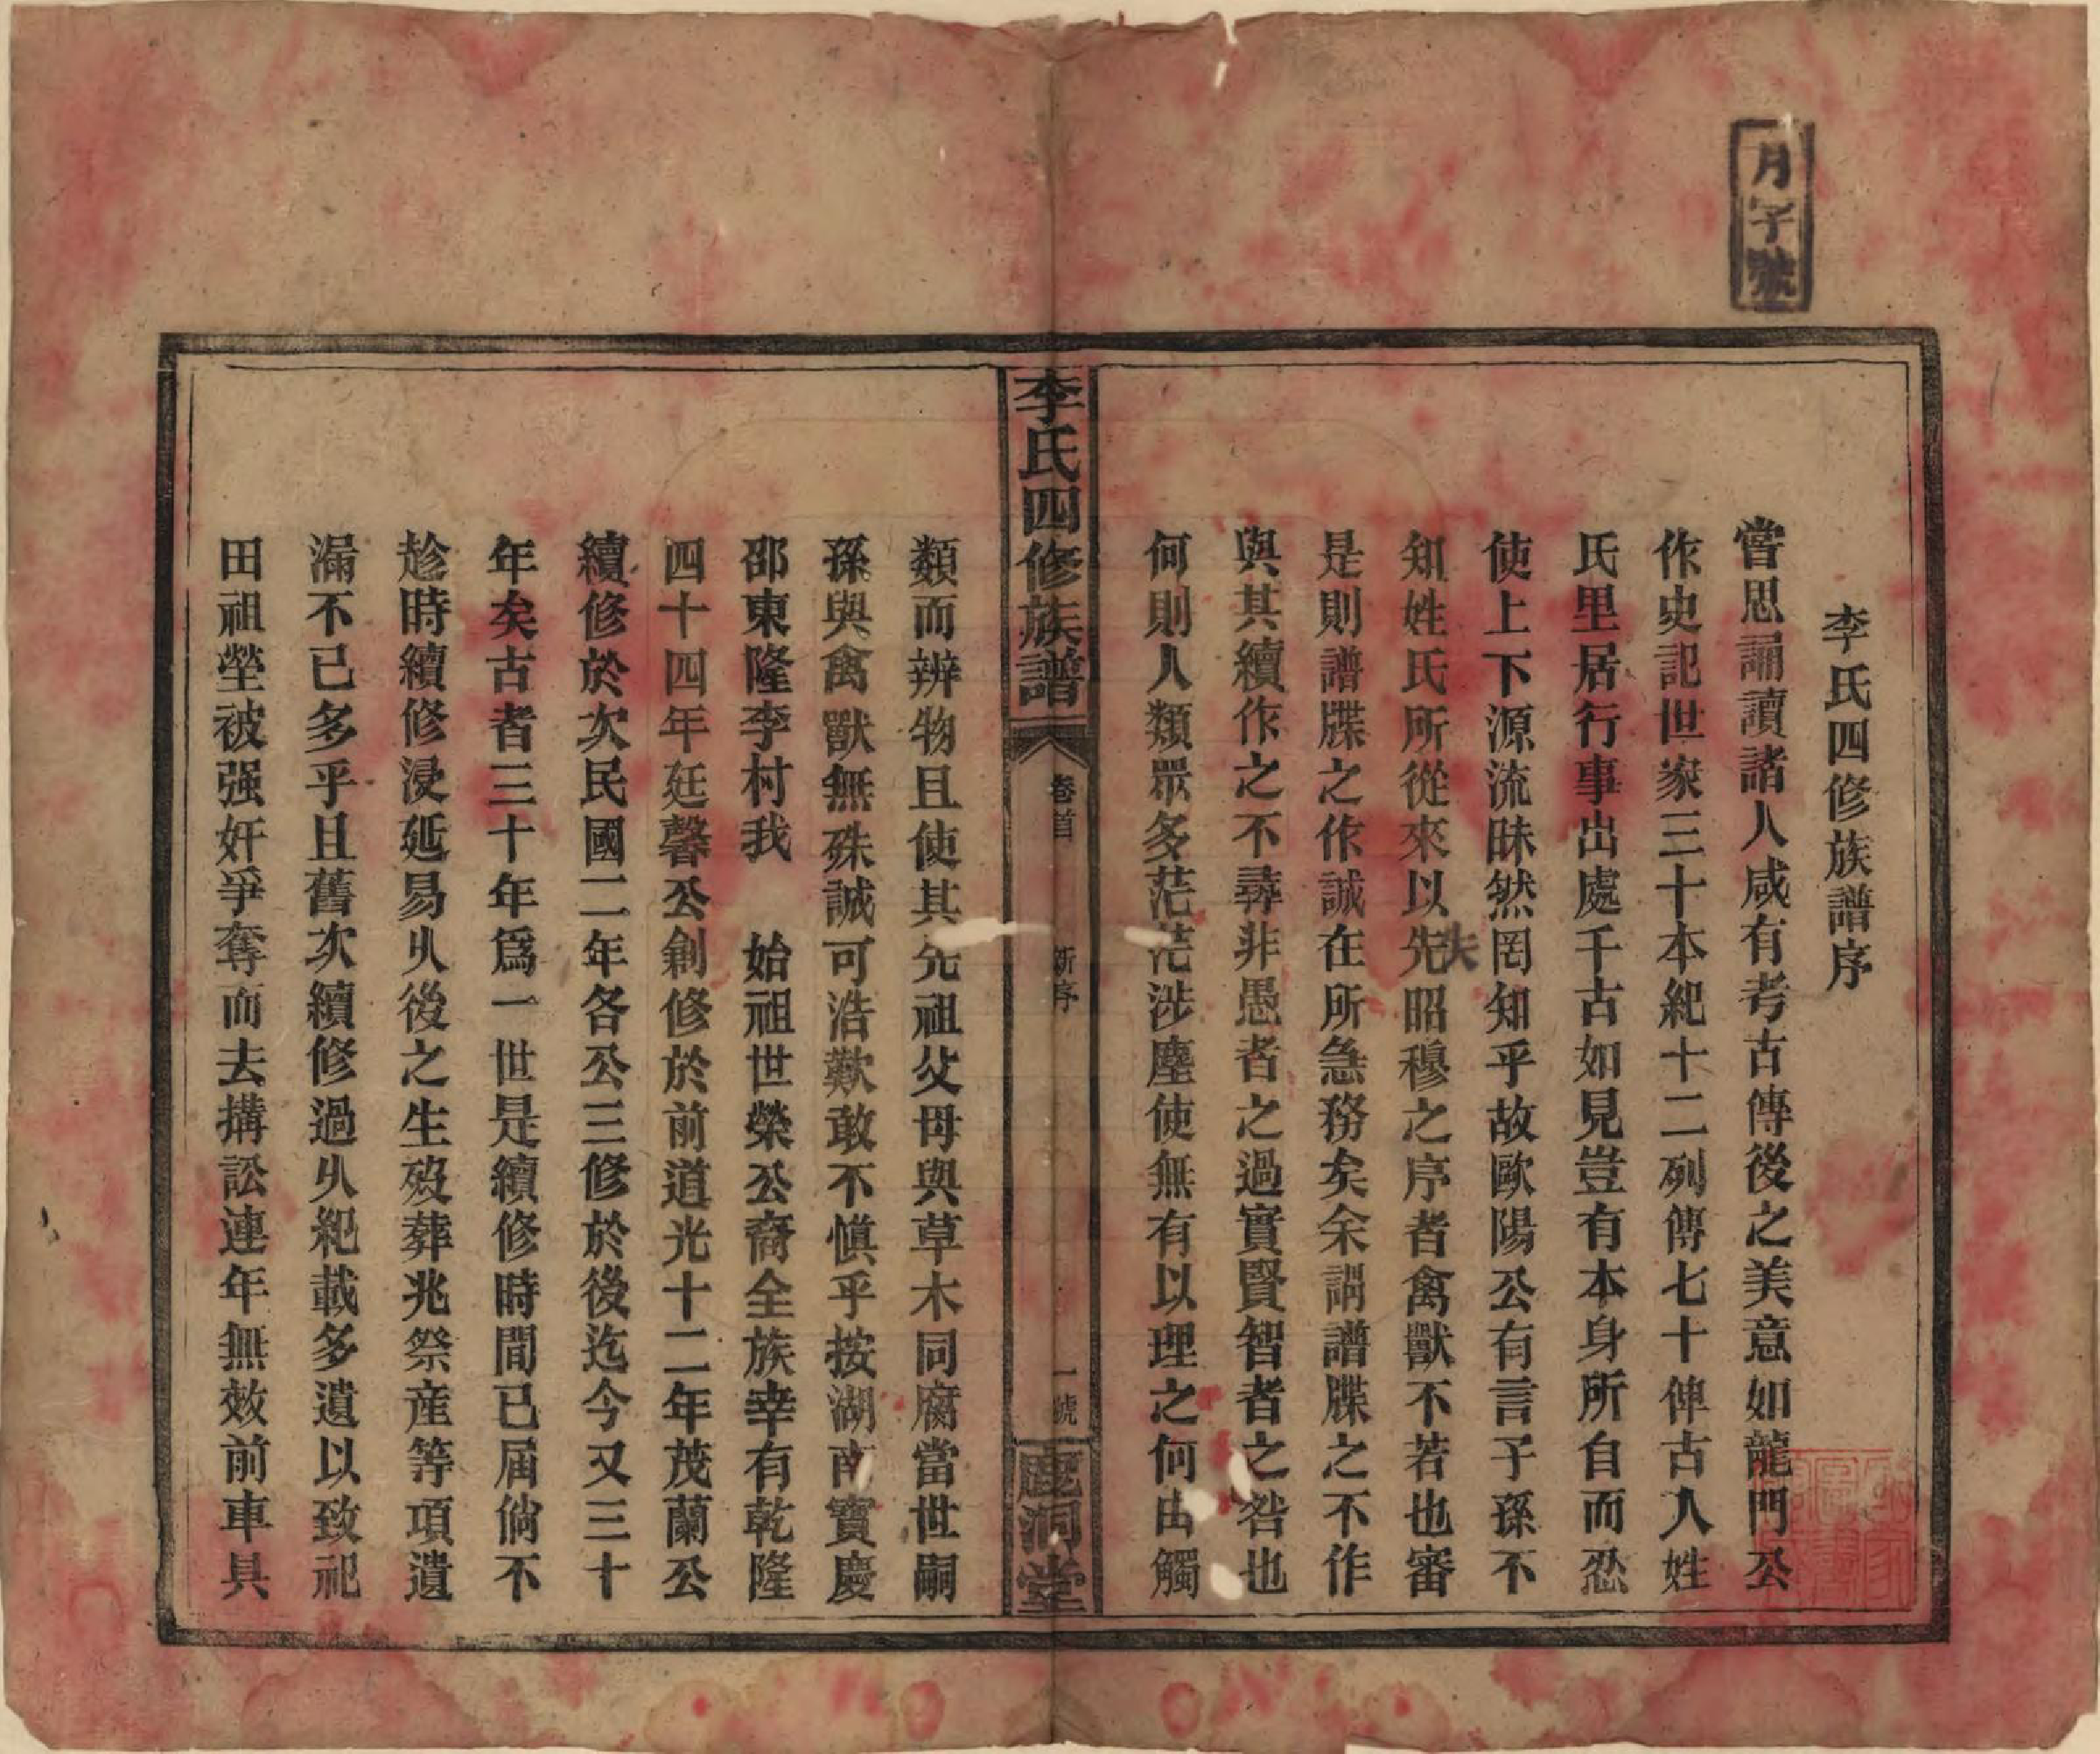 月字號
李氏四修族譜序
嘗思誦讀諸人咸有考古傳後之美意如龍門公
作史記世家三十本紀十二列傳七十俾古人姓
氏里居行事出處千古如見豈有本身所自而忍
使上下源流昧然罔知乎故歐陽公有言子孫不
知姓氏所從來以失先昭穆之序者禽獸不若也審
是則譜牒之作誠在所急務矣余謂譜牒之不作
與其續作之不尋非愚者之過實賢智者之咎也
何則人類眾多茫茫涉塵使無有以理之何由觸
李氏四修族譜
卷首
新序
一號
鹿洞堂
類而辨物且使其先祖父母與草木同腐當世嗣
孫與禽獸無殊誠可浩歎敢不慎乎按湖南寶慶
邵東隆李村我　始祖世榮公裔全族幸有乾隆
四十四年廷馨公創修於前道光十二年茂蘭公
續修於次民國二年各公三修於後迄今又三十
年矣古者三十年爲一世是續修時間已屆倘不
趁時續修浸延易乆後之生歿葬兆祭産等項遺
漏不已多乎且舊次續修過乆紀載多遺以致祀
田祖塋被强奸爭奪而去搆訟連年無效前車具